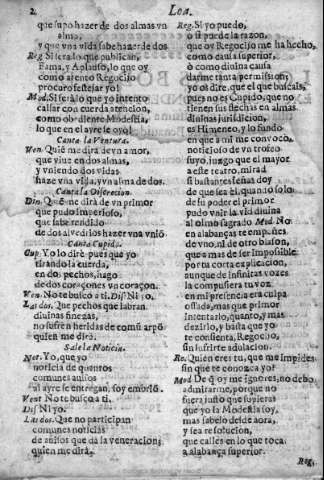 2. Loa.
que supo hazer de dos almas vn
alma,
y que vna vida sabe hazer de dos
Reg. Si era lo que publican,
Fama, y Aplauso, lo que oy
como atento Regocijo
procuro festejar yo!
Mod. Si será lo que yo intento
callar con cuerda atencion,
como obediente Modestia,
lo que en el ayre se oyò!
Canta la Ventura.
Ven. Quiẽ me dirà de vn amor
que viue en dos almas,
y vniendo dos vidas
haze vna vida, y vn alma de dos.
Canta la Discrecion.
Dis. Quiẽ me dirà de vn primor
que pudo imperioso,
que sabe rendido
de dos alvedrios hazer vna vniõ
Canta Cupido.
Cup. Yo lo dirè pues que yo
tirando la cuerda,
en dos pechos, hago
de dos coraçones vn coraçon.
Ven. No te busco a ti. Dis. Ni yo.
Las dos. Que pechos que labran
diuinas finezas,
no sufren heridas de comũ arpõ
quien me dirà.
Sale la Noticia.
Not. Yo, que yo
noticia de quantos
comunes auisos
al ayre se entregan, soy embiõ.
Vent No te busco a ti.
Dis Ni yo.
Las dos. Que no participan
comunes noticias
de auisos que dà la veneracion;
quien me dirà,
Reg. Si yo puedo,
o si puede la razon,
que oy Regocijo me ha hecho,
como causa superior,
o como diuina causa
darme tanta permission;
yo os dirè, que el que buscais,
pues no es Cupido, que no
tienen sus flechas en almas
diuinas jurisdicion,
es Himeneo, y lo fundo
en que a mi me convocò
noticioso de vn trofeo
suyo, juzgo que el mayor
a este teatro, mirad
si bastantes señas doy
de que sea èl, quando solo
de su poder el primor
pudo vnir la vida diuina
al olmo sagrado Mod. No
en alabanças te empeñes
de vno, ni de otro blason,
que a mas de ser impossible
por tu corta explicacion,
aunque de infinitas vozes
la compusiera tu voz
en mi presencia era culpa
osada, mas que primor
intentarlo, quanto, y mas
dezirlo, y basta que yo
te consienta, Regocijo,
sin sufrirte adulacion.
Re. Quien eres tu, que me impides
sin que te conozca yo?
Mod De q̃ oy me ignores, no debo
admirarme, porque no
fuera justo que supieras
que yo la Modestia soy,
mas sabelo desde aora,
y sea resolucion,
que calles en lo que toca
a alabança superior.
Reg,